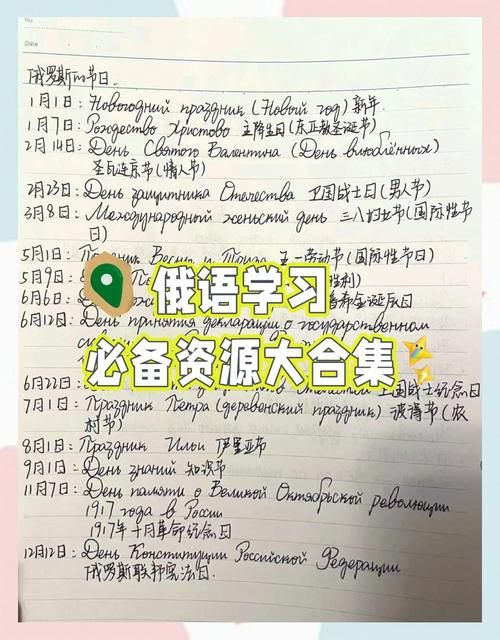 No.
Date
俄罗斯的节日.
1月1日: Новогодний праздник (Новый год) 新年
1月7日: Рождество Христово 主降生日(东正教圣诞节)
2月14日: День Святого Валентина (День влюблённых)
圣瓦连京节(情人节)
2月23日: День защитника Отечества 卫国战士日(男人节)
3月8日: Международный женьский день 三八妇女节(国际性节
日)
5月1日: Весны и Труда 五一劳动节(国际性节日)
5月9日: 胜利)
俄语学习
6月6日: 诞辰日
6月12日: День принятия декларации о государственном
必备资源大合集
6月22日: 卫国战士纪念日
7月1日: Праздник Петра (деревенский праздник) 彼得节(农
村节)
8月1日: Праздник Ильи 伊里亚节
9月1日: День знаний 知识节
11月7日: День памяти о Великой Октябрьской революции
1917 года в России
1917年十月革命纪念日
12月12日: День Конституции Российской Федерации
俄罗斯联邦宪法日.